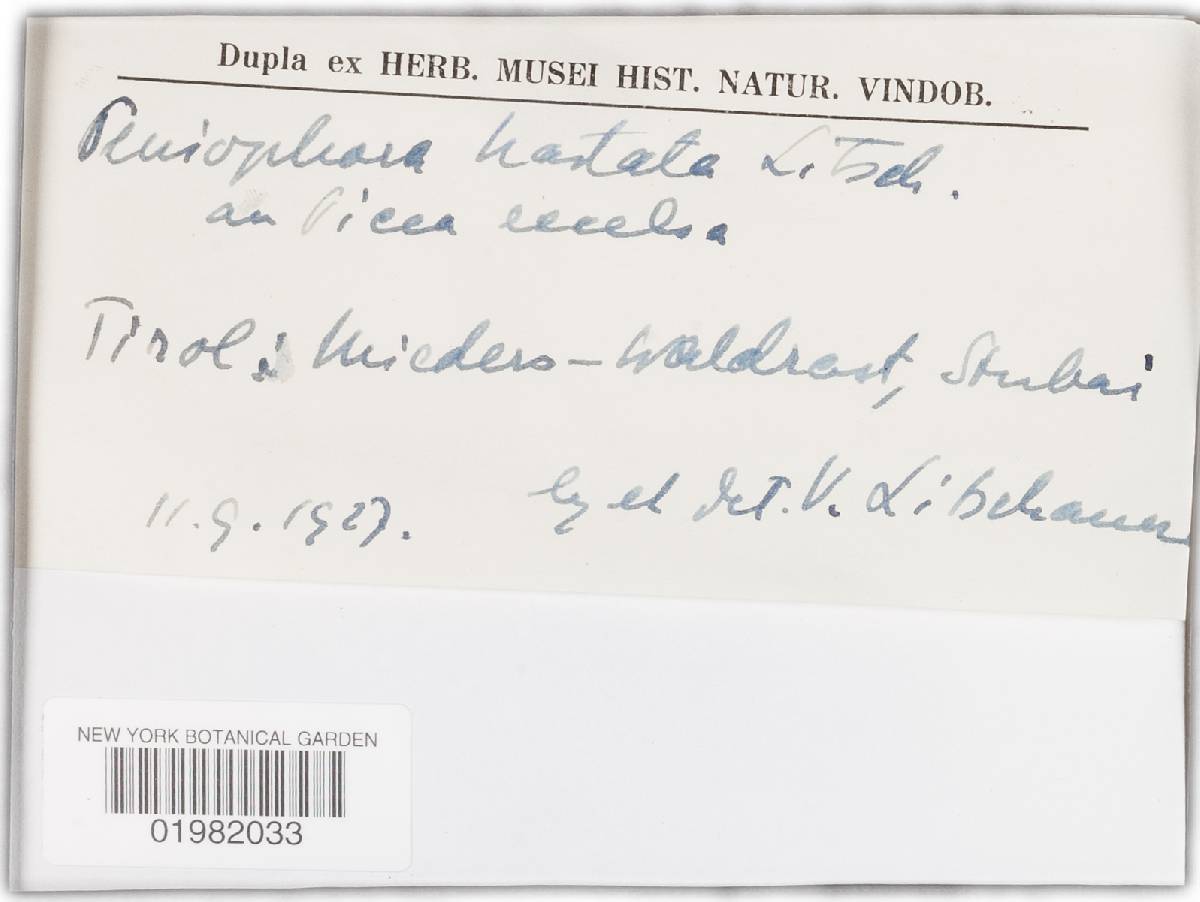 Dupla ex HERB. MUSEI HIST. NATUR. VINDOB.
Peniophora hastata Litsch.
an Picea excelsa
Tirol: Mieders-Waldrast, Stubai
11.9.1927. leg et det. V. Litschauer
NEW YORK BOTANICAL GARDEN
01982033